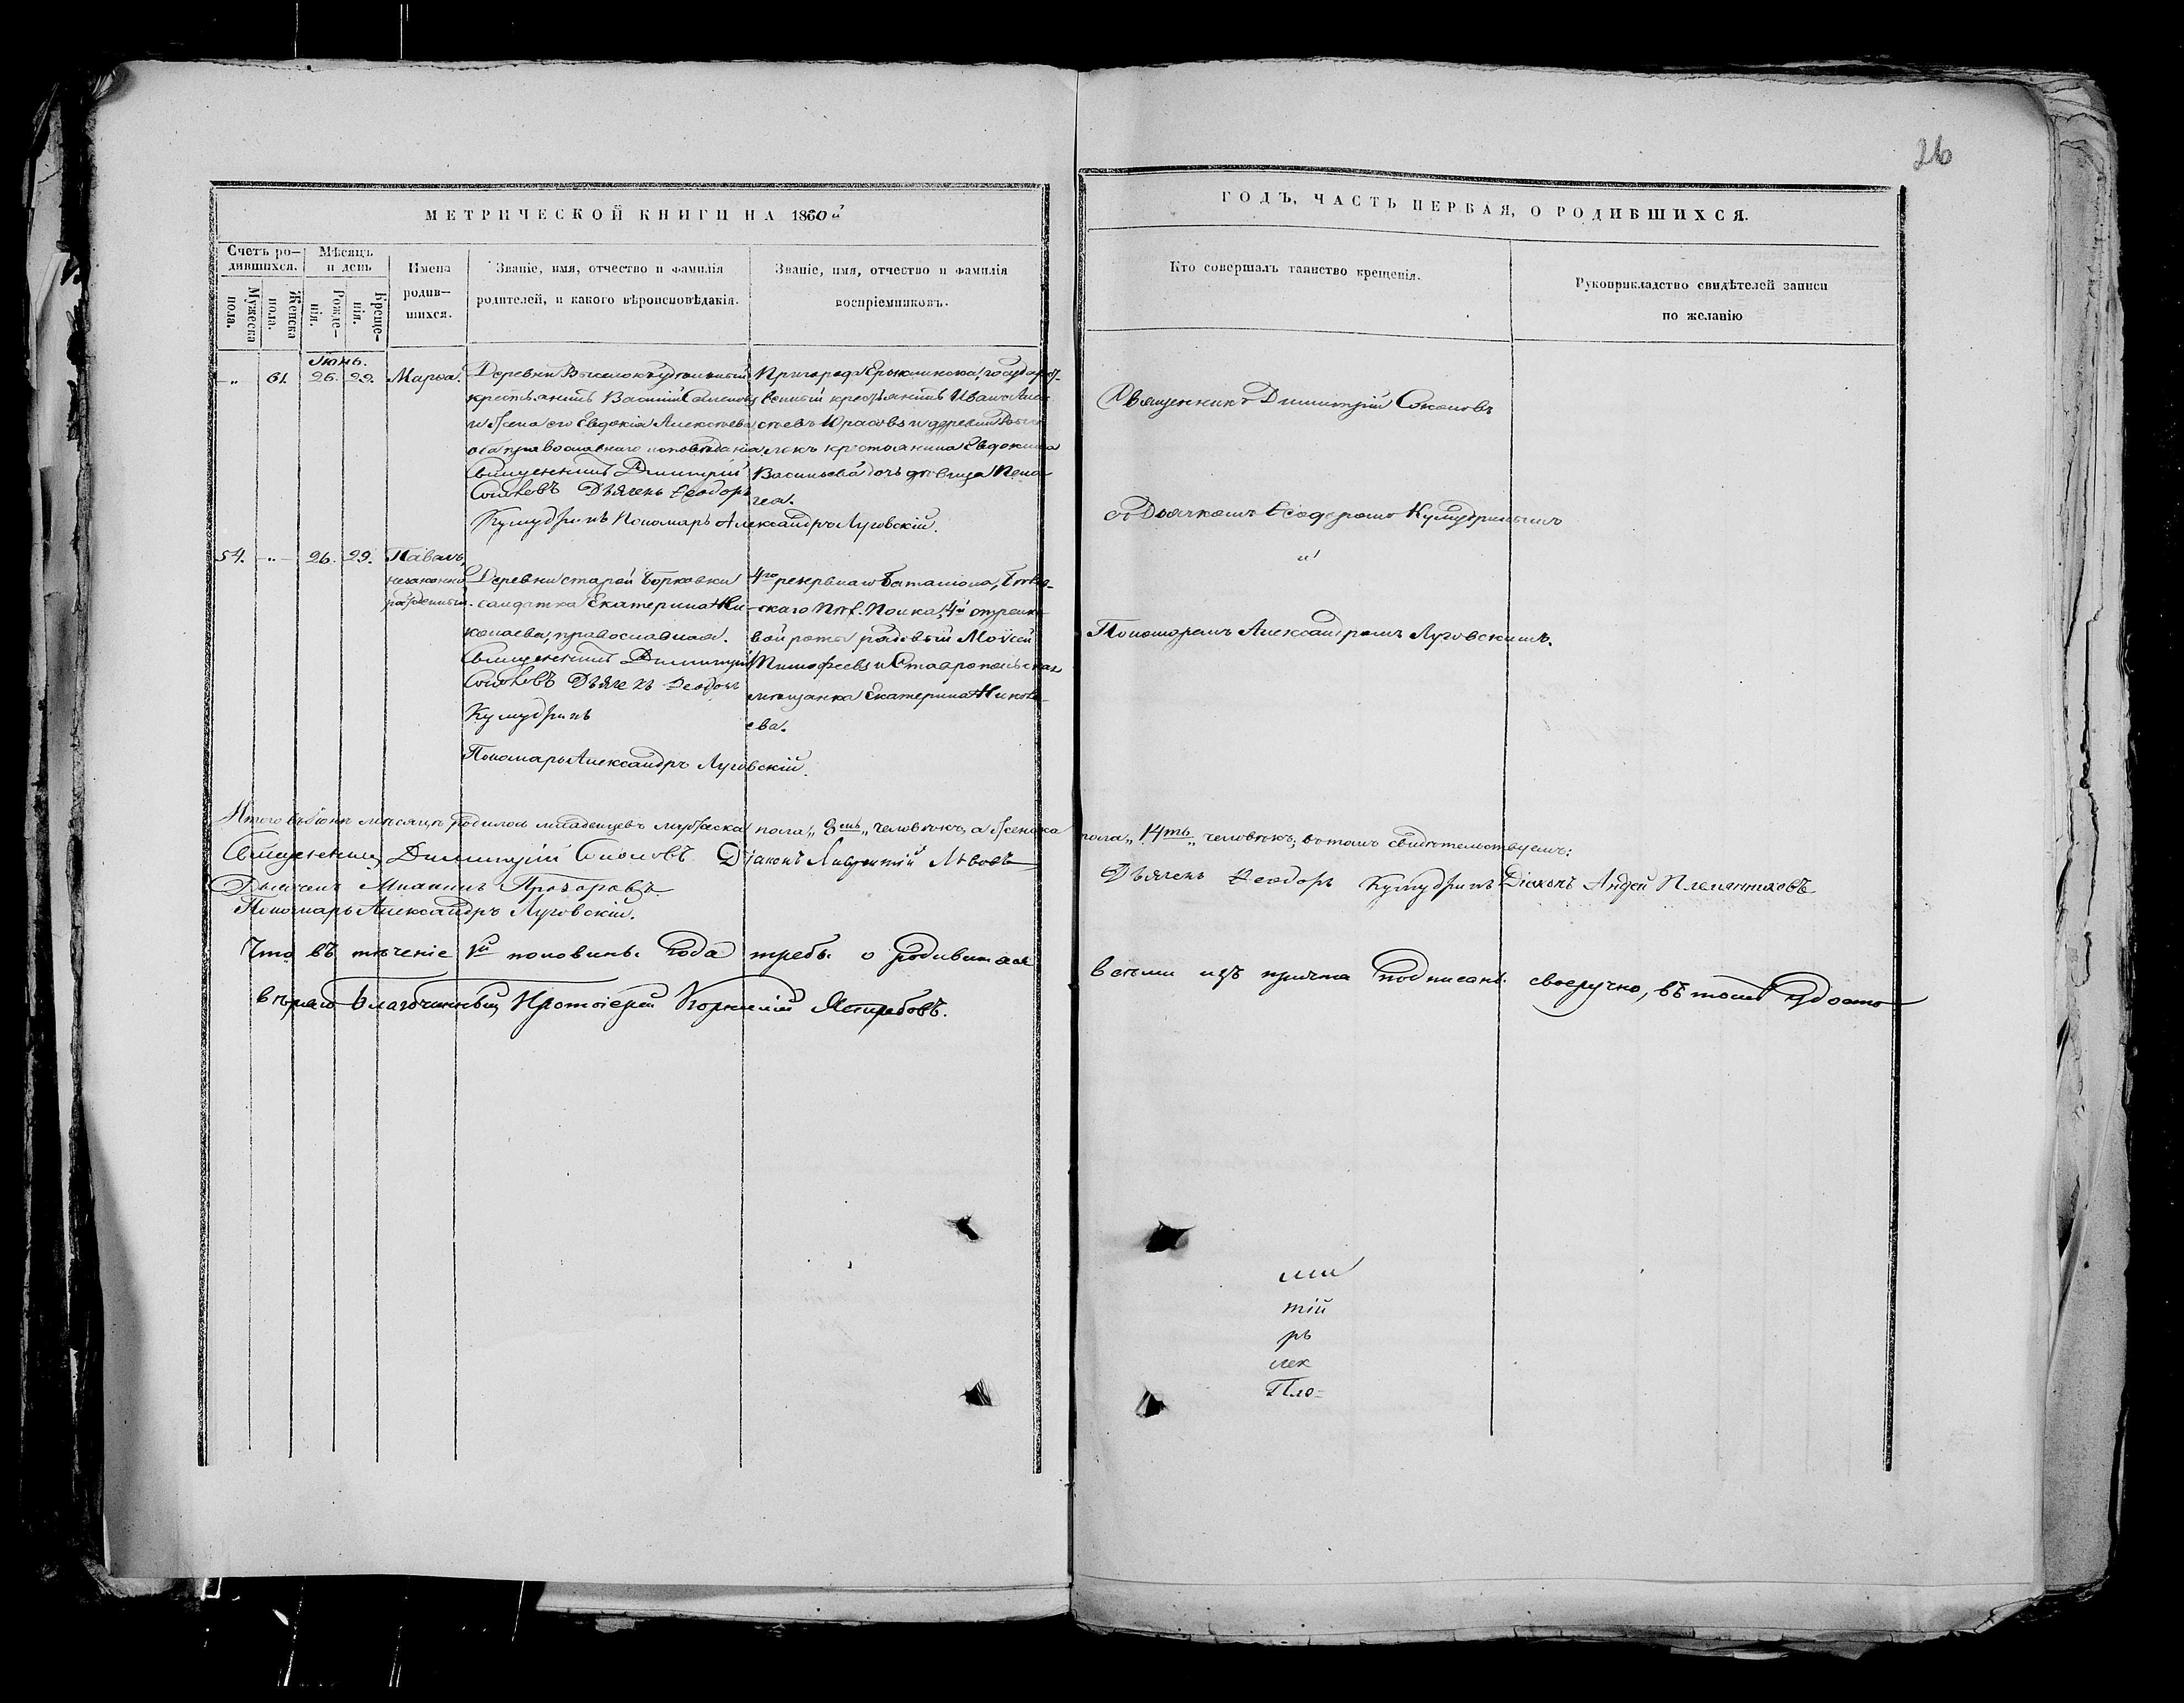 26
МЕТРИЧЕСКОЙ КНИГИ НА 1860й
ГОДЪ, ЧАСТЬ ПЕРВАЯ, О РОДИВШИХСЯ.
Счетъ ро–
дившихся.
Мужеска
пола.
Женска
пола.
Мѣсяцъ
и день
Рожде–
нія.
Креще–
нія.
Имена
родив–
шихся.
Званіе, имя, отчество и фамилія
родителей, и какого вѣроисповѣданія.
Званіе, имя, отчество и фамилія
воспріемниковъ.
Кто совершалъ таинство крещенія.
Рукоприкладство свидѣтелей записи
по желанію
Іюнь.
„ 61. 26. 29. Марѳа.
Деревни
крестьянинъ Василій
и жена его Евдокія Алексѣева
оба православнаго исповѣданія
Священникъ Димитрій
Соколовъ Дьячекъ Ѳеодоръ
Кумудринъ Пономарь Александръ Луговскій.
Пригорода Ерыклинска, государст-
венный крестьянинъ Иванъ
и деревни
крестьянина Евдокима
Васильева дочь дѣвица Пела-
гея.
Священникъ Димитрій Соколовъ
съ Дьячкомъ Ѳеодоромъ Кумудринымъ
и
Пономаремъ Александромъ Луговскимъ.
54. „ 26. 29. Павелъ,
незаконно
рожденный.
Деревни старой Борковки
солдатка Екатерина Ни-
колаева, православная.
Священникъ Димитрій
Соколовъ Дьячекъ Ѳеодоръ
Кумудринъ
Пономарь Александръ Луговскій.
4го резервнаго Баталіона,
скаго Полка, 4й стрелко-
вой роты рядовый Моѵсей
Тимофеевъ и Ставропольская
мѣщанка Екатерина Никола-
ева.
Итого въ Іюнѣ мѣсяцѣ родилось младенцевъ мужеска пола „ 8емь „ человѣкъ, а женска
пола „ 14ть „ человѣкъ; въ томъ свидѣтельствуемъ:
Священникъ Димитрій Соколовъ Діаконъ Лаврентій Львовъ
Дьячекъ Ѳеодоръ Кумудринъ Діаконъ Андрей Племянниковъ
Дьячекъ Прохоровъ
Пономарь Александръ Луговскій.
Что въ теченіе 1й половины года требы о родившихся
всѣми изъ причта подписаны своеручно, въ томъ удосто
вѣряю Благочинный Протоіерей Корнилій Ястребовъ.
ми
тій
рь
лек
Пло=